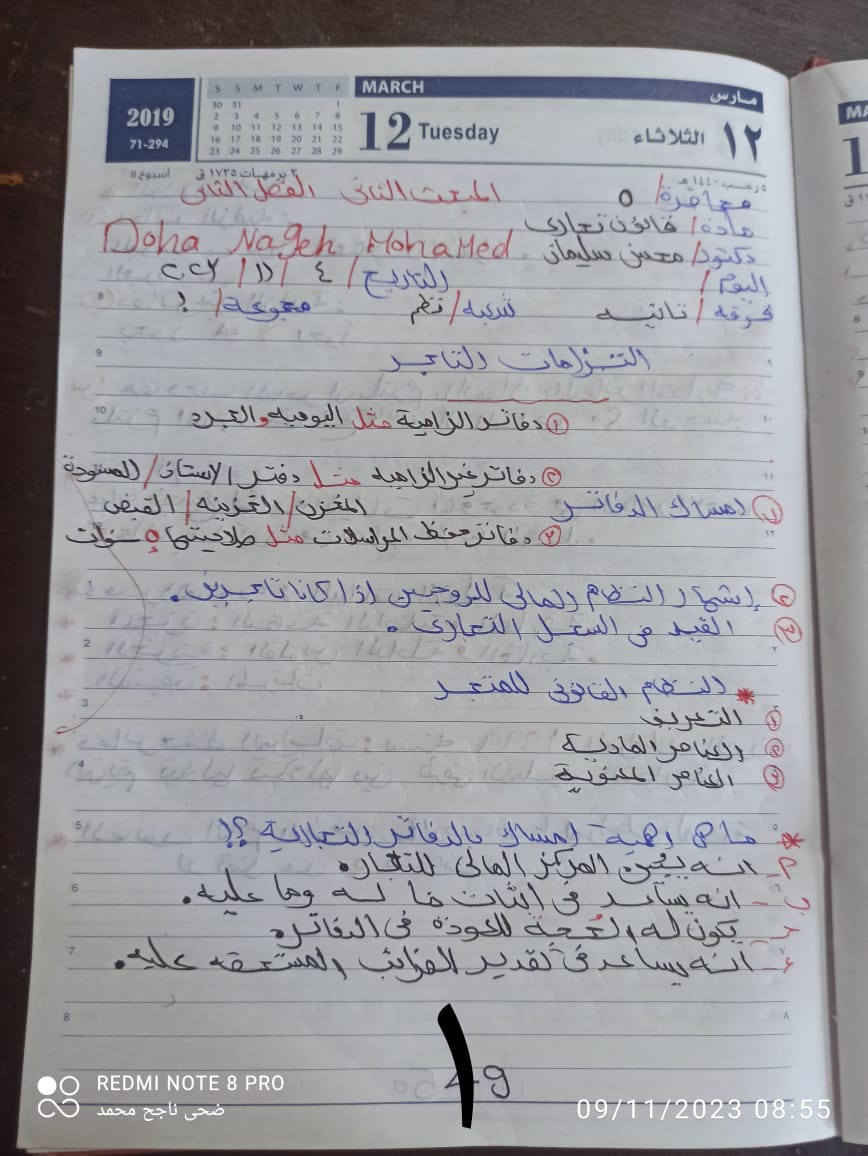 2019
71-294
S S M T W T F
30 31 1
2 3 4 5 6 7 8
9 10 11 12 13 14 15
16 17 18 19 20 21 22
23 24 25 26 27 28 29
MARCH مارس
12 Tuesday الثلاثاء ١٢
٥ رجب ١٤٤٠ هـ ٣ برمهات ١٧٣٥ ق أسبوع ١١
محاضرة/ ٥ المبحث الثانى الفصل الثانى
مادة/ قانون تجارى
دكتور/ محسن سليمان Doha Nageh Mohamed
اليوم/ التاريخ/ ٤ / ١١ / ٢٠٢٣
فرقة/ تانيه شعبه/ نظم مجموعة/
التزامات التاجر
① دفاتر الزامية مثل اليوميه والجرد
② دفاتر غير الزاميه مثل دفتر الاستاذ/ المسودة
① امساك الدفاتر المخزن/ الخزينه/ القبض
③ دفاتر حفظ المراسلات مثل صلاحيتها ٥ سنوات
② إشهار النظام المالى للزوجين اذا كانا تاجرين.
③ القيد فى السجل التجارى.
* النظام القانونى للمتجر
① التعريف
② العناصر المادية
③ العناصر المعنوية
* ما اهمية امساك بالدفاتر التجارية ؟!
م- انه يبين المركز المالى للتجار.
ب- انه يساعد فى اثبات ما له وما عليه.
ج- يكون له الحجة للعودة فى الدفاتر.
ء- انه يساعد فى تقدير الضرائب المستحقه عليه.
49
REDMI NOTE 8 PRO
ضحى ناجح محمد
09/11/2023 08:55